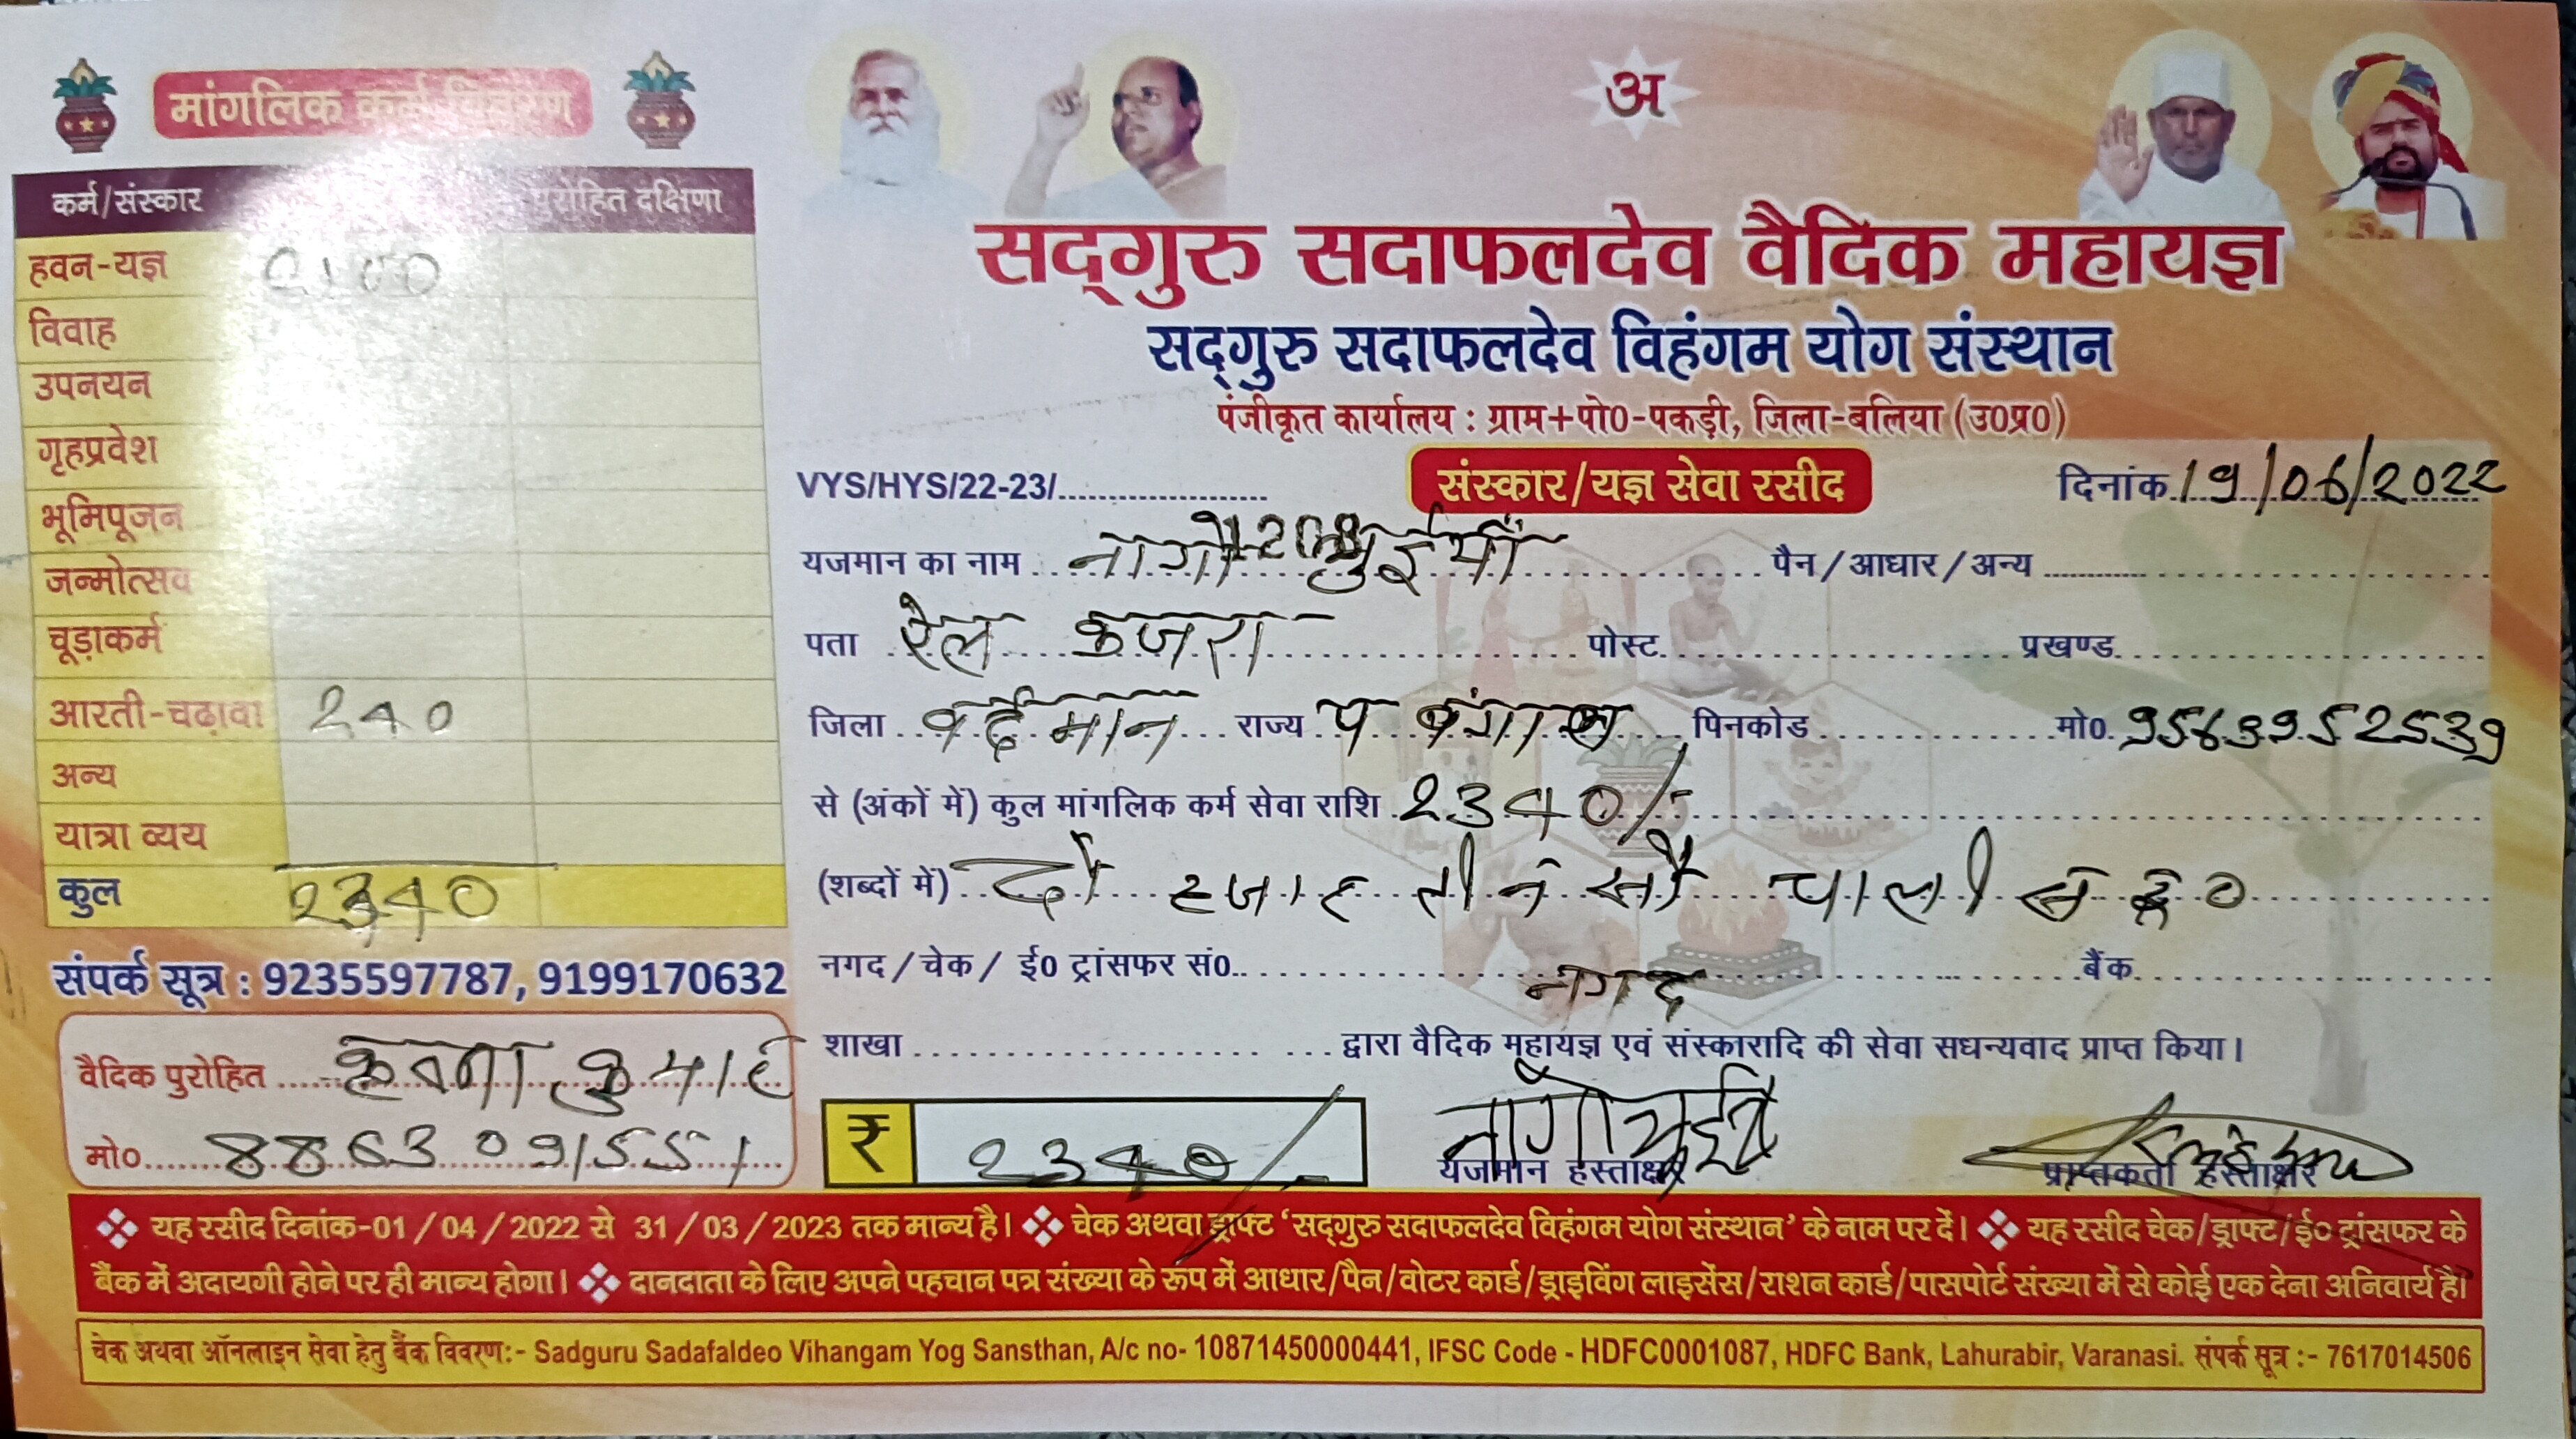 मांगलिक कर्म विवरण
कर्म/संस्कार पुरोहित दक्षिणा
हवन-यज्ञ 2100
विवाह
उपनयन
गृहप्रवेश
भूमिपूजन
जन्मोत्सव
चूड़ाकर्म
आरती-चढ़ावा 240
अन्य
यात्रा व्यय
कुल 2340
संपर्क सूत्र : 9235597787, 9199170632
वैदिक पुरोहित कुमार
मो० 8863091551
अ
सद्गुरु सदाफलदेव वैदिक महायज्ञ
सद्गुरु सदाफलदेव विहंगम योग संस्थान
पंजीकृत कार्यालय : ग्राम+पो0-पकड़ी, जिला-बलिया (उ0प्र0)
VYS/HYS/22-23/ संस्कार/यज्ञ सेवा रसीद दिनांक 19/06/2022
1208
यजमान का नाम नागो भुईयाँ पैन/आधार/अन्य
पता रेल कजरा पोस्ट प्रखण्ड
जिला वर्दमान राज्य प बंगाल पिनकोड मो0. 9563952539
से (अंकों में) कुल मांगलिक कर्म सेवा राशि 2340/-
(शब्दों में) दो हजार तीन सौ चालीस रु0
नगद/चेक/ ई0 ट्रांसफर सं0. नगद बैंक
शाखा द्वारा वैदिक महायज्ञ एवं संस्कारादि की सेवा सधन्यवाद प्राप्त किया।
₹ 2340/- नागो भुईयाँ
यजमान हस्ताक्षर प्राप्तकर्ता हस्ताक्षर
❖ यह रसीद दिनांक-01/04/2022 से 31/03/2023 तक मान्य है। ❖ चेक अथवा ड्राफ्ट ‘सद्गुरु सदाफलदेव विहंगम योग संस्थान’ के नाम पर दें। ❖ यह रसीद चेक/ड्राफ्ट/ई० ट्रांसफर के
बैंक में अदायगी होने पर ही मान्य होगा। ❖ दानदाता के लिए अपने पहचान पत्र संख्या के रूप में आधार/पैन/वोटर कार्ड/ड्राइविंग लाइसेंस/राशन कार्ड/पासपोर्ट संख्या में से कोई एक देना अनिवार्य है।
चेक अथवा ऑनलाइन सेवा हेतु बैंक विवरण:- Sadguru Sadafaldeo Vihangam Yog Sansthan, A/c no- 10871450000441, IFSC Code - HDFC0001087, HDFC Bank, Lahurabir, Varanasi. संपर्क सूत्र :- 7617014506